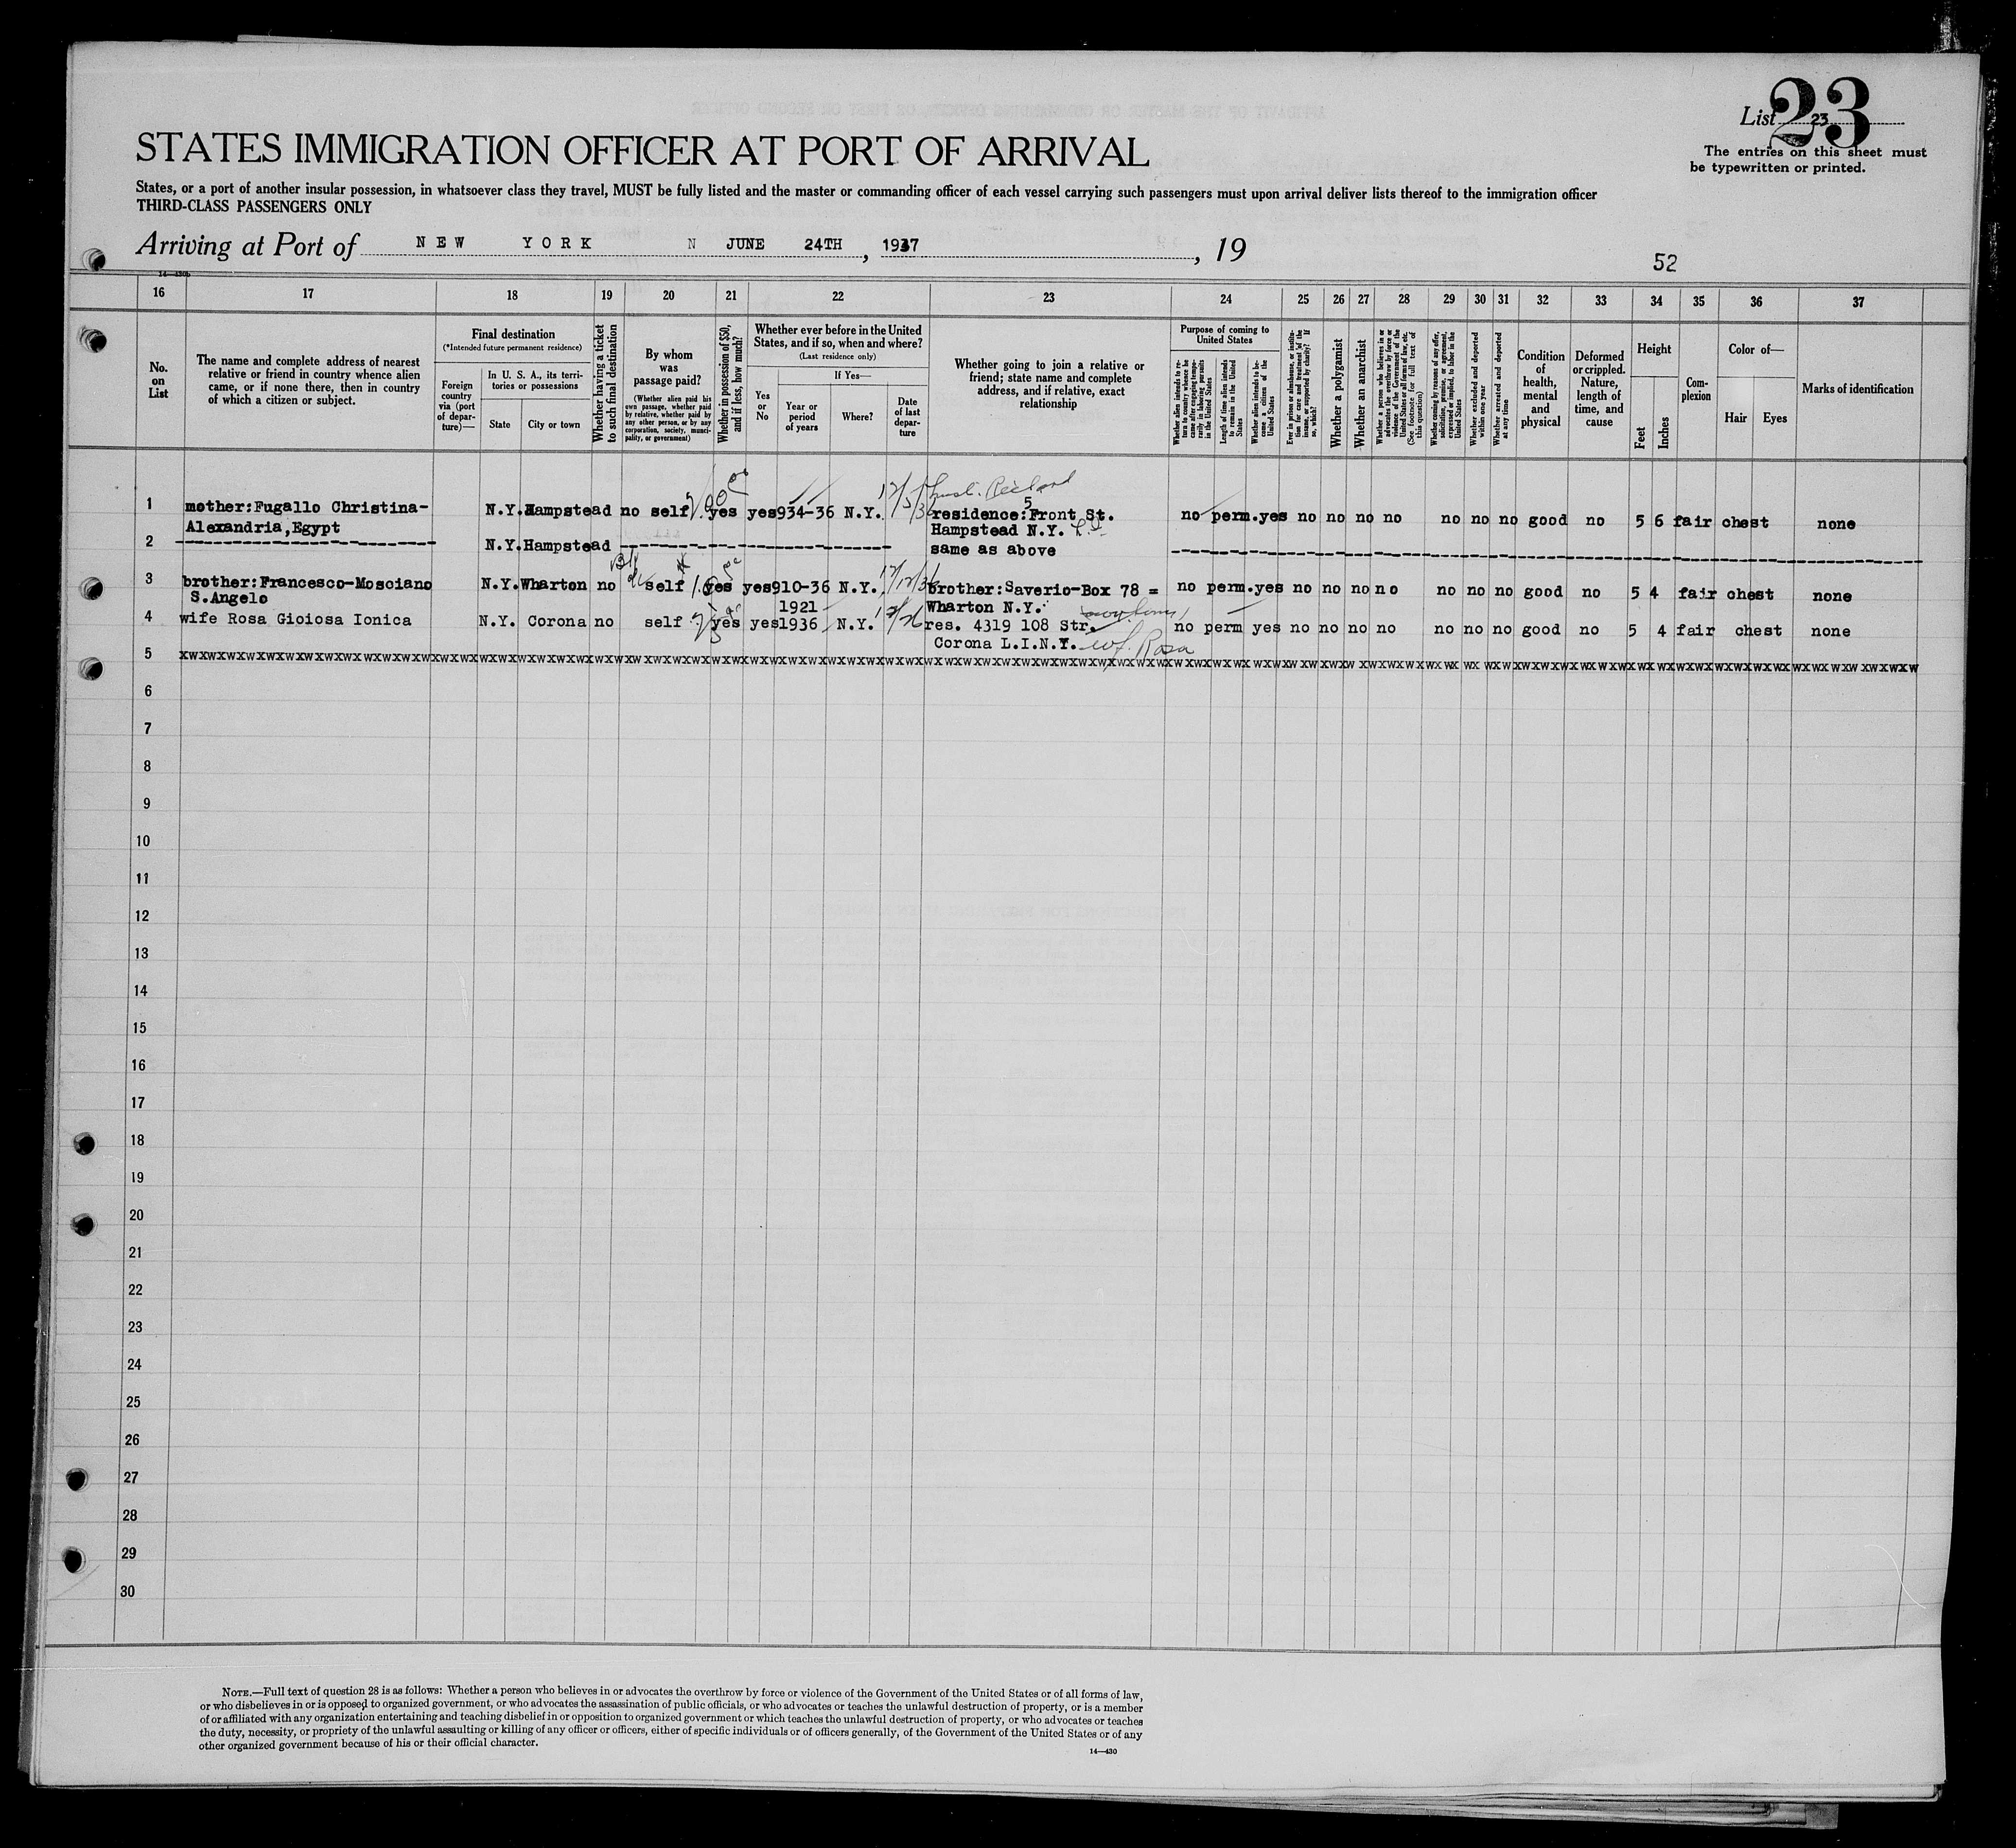 List 23
23
The entries on this sheet must
be typewritten or printed.
STATES IMMIGRATION OFFICER AT PORT OF ARRIVAL
States, or a port of another insular possession, in whatsoever class they travel, MUST be fully listed and the master or commanding officer of each vessel carrying such passengers must upon arrival deliver lists thereof to the immigration officer
THIRD-CLASS PASSENGERS ONLY
Arriving at Port of NEW YORK N JUNE 24TH , 1937 , 19
52
14-430b
16 17 18 19 20 21 22 23 24 25 26 27 28 29 30 31 32 33 34 35 36 37
No. on List
The name and complete address of nearest relative or friend in country whence alien came, or if none there, then in country of which a citizen or subject.
Final destination
(*Intended future permanent residence)
Foreign country via (port of departure)—
In U. S. A., its territories or possessions
State
City or town
Whether having a ticket to such final destination
By whom was passage paid?
(Whether alien paid his own passage, whether paid by relative, whether paid by any other person, or by any corporation, society, municipality, or government)
Whether in possession of $50, and if less, how much?
Whether ever before in the United States, and if so, when and where?
(Last residence only)
Yes or No
If Yes—
Year or period of years
Where?
Date of last departure
Whether going to join a relative or friend; state name and complete address, and if relative, exact relationship
Purpose of coming to United States
Whether alien intends to return to country whence he came after engaging temporarily in laboring pursuits in the United States
Length of time alien intends to remain in the United States
Whether alien intends to become a citizen of the United States
Ever in prison or almshouse, or institution for care and treatment of the insane, or supported by charity? If so, which?
Whether a polygamist
Whether an anarchist
Whether a person who believes in or advocates the overthrow by force or violence of the Government of the United States or all forms of law, etc. (See footnote for full text of this question)
Whether coming by reasons of any offer, solicitation, promise, or agreement, expressed or implied, to labor in the United States
Whether excluded and deported within one year
Whether arrested and deported at any time
Condition of health, mental and physical
Deformed or crippled. Nature, length of time, and cause
Height
Feet
Inches
Complexion
Color of—
Hair
Eyes
Marks of identification
1 mother:Fugallo Christina- N.Y. Hampstead no self yes yes 934-36 N.Y. residence:5 Front St. no perm. yes no no no no no no no good no 5 6 fair chest none
Alexandria,Egypt Hampstead N.Y.
2 N.Y. Hampstead same as above
3 brother:Francesco-Mosciano N.Y. Wharton no self yes yes 910-36 N.Y. 12/12/36 brother:Saverio-Box 78 = no perm. yes no no no no no no no good no 5 4 fair chest none
S.Angelo 1921 Wharton N.Y.
4 wife Rosa Gioiosa Ionica N.Y. Corona no self yes yes 1936 N.Y. res. 4319 108 Str. no perm yes no no no no no no no good no 5 4 fair chest none
Corona L.I.N.Y. wf. Rosa
5
6
7
8
9
10
11
12
13
14
15
16
17
18
19
20
21
22
23
24
25
26
27
28
29
30
NOTE.—Full text of question 28 is as follows: Whether a person who believes in or advocates the overthrow by force or violence of the Government of the United States or of all forms of law,
or who disbelieves in or is opposed to organized government, or who advocates the assassination of public officials, or who advocates or teaches the unlawful destruction of property, or is a member
of or affiliated with any organization entertaining and teaching disbelief in or opposition to organized government or which teaches the unlawful destruction of property, or who advocates or teaches
the duty, necessity, or propriety of the unlawful assaulting or killing of any officer or officers, either of specific individuals or of officers generally, of the Government of the United States or of any
other organized government because of his or their official character.
14—430